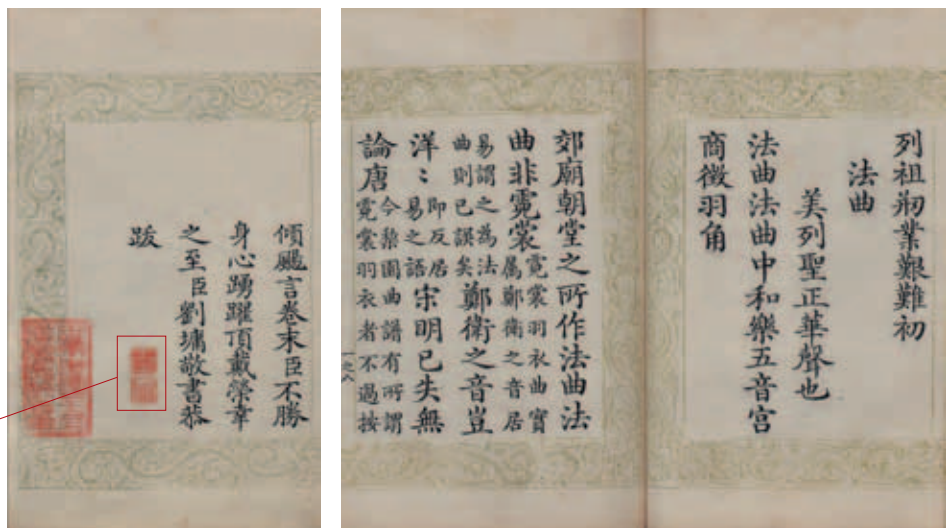 列祖剏業艱難初
法曲
美列聖正華聲也
法曲法曲中和樂五音宮
商徵羽角
郊廟朝堂之所作法曲法
曲非霓裳霓裳羽衣曲實屬鄭衛之音居
易謂之為法曲則已誤矣鄭衛之音豈
洋〻即反居易之語宋明已失無
論唐今棃園曲譜有所謂霓裳羽衣者不過按
傾颺言卷末臣不勝
身心踴躍頂戴榮幸
之至臣劉墉敬書恭
跋